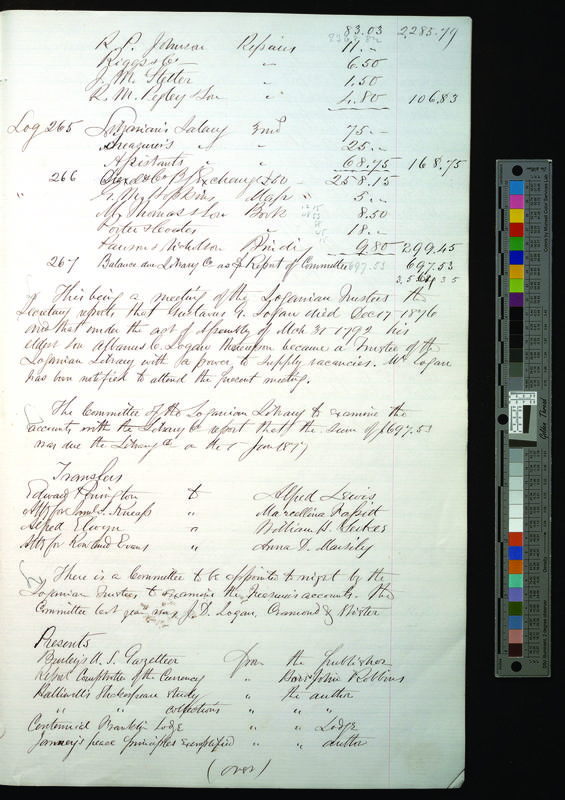 83.03 2,285.79
R. P. Johnson Repairs 11.--
Riggs & Co " 6.50
J. M. Stetter " 1.50
R. M. & Son " 4.80 106.83
Log 265 Librarian's Salary 2nd 75.--
Treasurer's " " 25.--
Assistants " " 68.75 168.75
" 266 & Co Exchange £50 -- 258.15
G. M. Hopkins Maps " 5.--
M. Thomas & Son Book 8.50
Porter & Coates " 18.--
Nicholson Binding 9.80 299.45
267 Balance due Library Co as Report of Committee 697.53 697.53
This being a meeting of the Loganian Trustees the
Secretary reports that Gustavus G. Logan died Dec 17 1876
and that under the act of Assembly of Mch 31 1792 his
eldest son C. Logan thereupon became a Trustee of the
Loganian Library with a power to supply vacancies. Mr. Logan
has been notified to attend the present meeting.
The Committee of the Loganian Library to examine the
accounts with the Library Co report that the sum of $697.53
was due the Library Co on the 1 Jany 1877
Transfers
Edward Penington to Alfred Lewis
Atty for " Marcellina
Alfred Elwyn " William H.
Atty for Rowland Evans " Anna D.
There is a Committee to be appointed to night by the
Loganian Trustees to examine the Treasurer's accounts. The
Committee last year was J. D. Logan, Cramond & Wister
Presents
Burley's U. S. Gazetteer from the publisher
Report Comptroller of the Currency " Hon. John Robbins
Halliwell's Shakespeare study " the author
" " collections " " "
Centennial Franklin Lodge " " Lodge
Janney's peace principles exemplified " " author
(over)